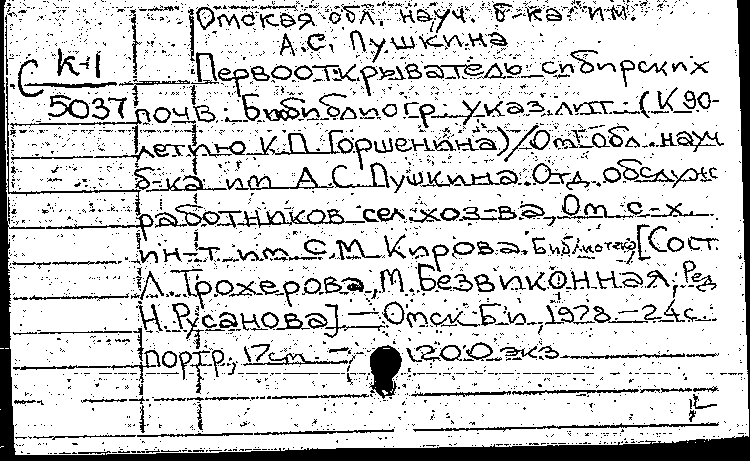 Омская обл. науч. б-ка им.
А.С. Пушкина
С К-1
5037
Первооткрыватель сибирских
почв: Библиогр. указ. лит. (К 90-
летию К.П. Горшенина)/Ом. обл. науч
б-ка им А.С. Пушкина. Отд. обслуж
работников сел. хоз-ва, Ом с-х.
ин-т им С.М Кирова. Библиотека, [Сост.
Л. Трохерова, М. Безвиконная, Ред
Н. Русанова] — Омск Б.и, 1978. — 24с.
портр; 17см. — 1200 экз